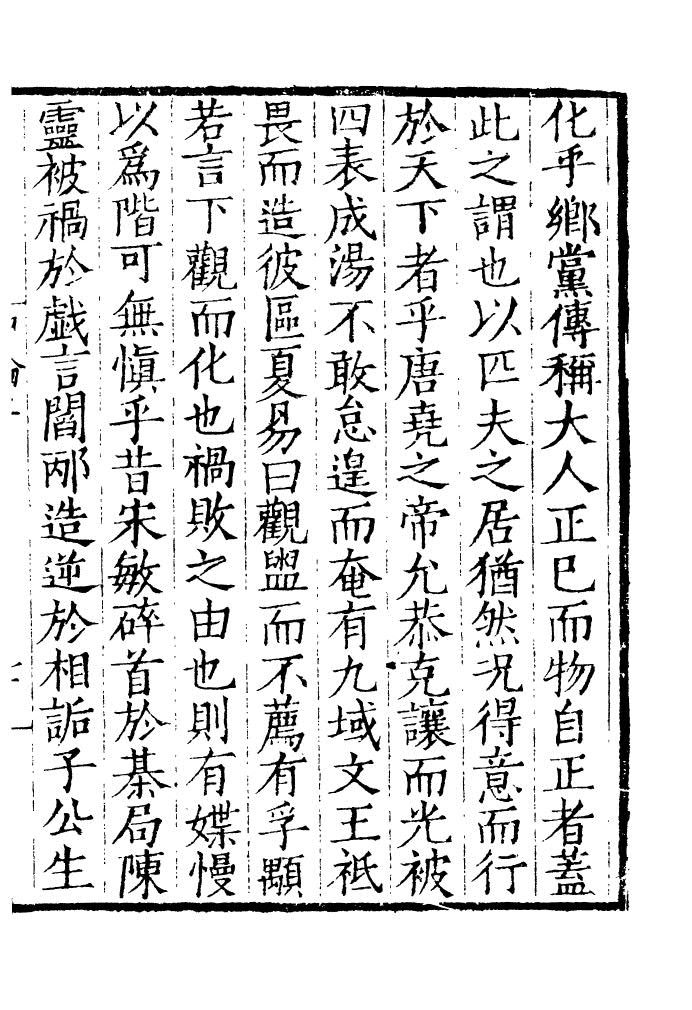 化乎鄉黨傳稱大人正巳而物自正者蓋
此之謂也以匹夫之居猶然况得意而行
於天下者乎唐堯之帝允恭克讓而光被
四表成湯不敢怠遑而奄有九域文王祗
畏而造彼區夏易曰觀盥而不薦有孚顒
若言下觀而化也禍敗之由也則有媟慢
以爲階可無慎乎昔宋敏碎首於棊局陳
靈被禍於戯言閻邴造逆於相詬子公生